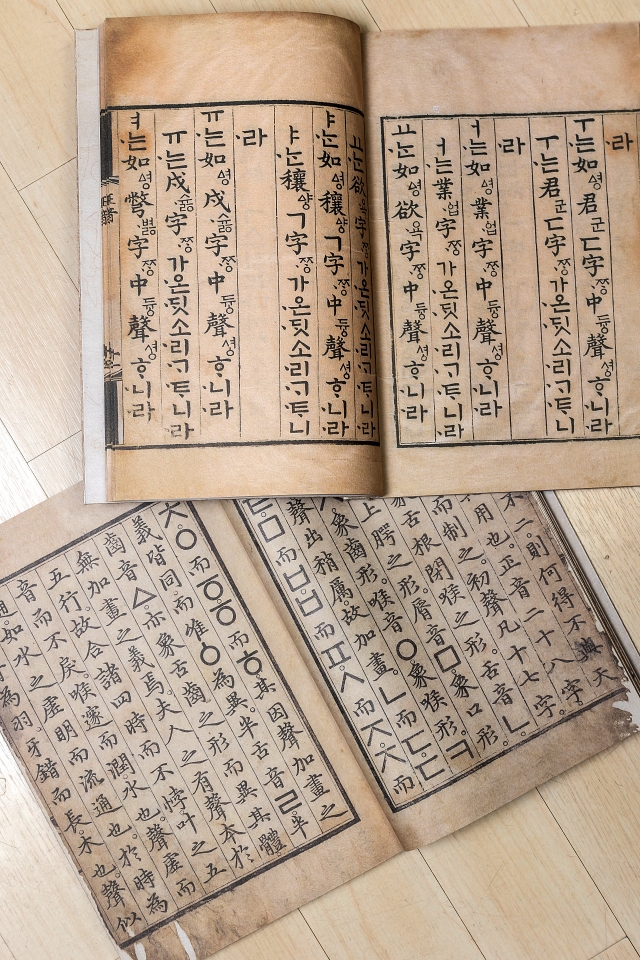 ·라
ㅜ·는如ᅀᅧᆼ君군ㄷ字·ᄍᆞᆼ中듀ᇰ聲셔ᇰ·ᄒᆞ니·라
ㅜ·는君군ㄷ字·ᄍᆞᆼ가·온·딧소·리·ᄀᆞ·ᄐᆞ니
·라
ㅓ·는如ᅀᅧᆼ業·업字·ᄍᆞᆼ中듀ᇰ聲셔ᇰ·ᄒᆞ니·라
ㅓ·는業·업字·ᄍᆞᆼ가·온·딧소·리·ᄀᆞ·ᄐᆞ니·라
ㅛ·ᄂᆞᆫ如ᅀᅧᆼ欲·욕字·ᄍᆞᆼ中듀ᇰ聲셔ᇰ·ᄒᆞ니·라
ㅛ·ᄂᆞᆫ欲·욕字·ᄍᆞᆼ가·온·딧소·리·ᄀᆞ·ᄐᆞ니·라
ㅑ·ᄂᆞᆫ如ᅀᅧᆼ穰ᅀᅣᇰㄱ字·ᄍᆞᆼ中듀ᇰ聲셔ᇰ·ᄒᆞ니·라
ㅑ·ᄂᆞᆫ穰ᅀᅣᇰㄱ字·ᄍᆞᆼ가·온·딧소·리·ᄀᆞ·ᄐᆞ니
·라
ㅠ·는如ᅀᅧᆼ戌·슈ᇙ字·ᄍᆞᆼ中듀ᇰ聲셔ᇰ·ᄒᆞ니·라
ㅠ·는戌·슈ᇙ字·ᄍᆞᆼ가·온·딧소·리·ᄀᆞ·ᄐᆞ니·라
ㅕ·는如ᅀᅧᆼ彆·벼ᇙ字·ᄍᆞᆼ中듀ᇰ聲셔ᇰ·ᄒᆞ니·라
不二。則何得不與天
用也。正音二十八字。
而制之。初聲凡十七字。
舌根閉喉之形。舌音ㄴ。
上腭之形。脣音ㅁ。象口形。
象齒形。喉音ㅇ。象喉形。ㅋ
聲出稍厲。故加畫。ㄴ而ㄷ。ㄷ
ㅁ而ㅂ。ㅂ而ㅍ。ㅅ而ㅈ。ㅈ而
ㅊ。ㅇ而ㆆ。ㆆ而ㅎ。其因聲加畫之
義皆同。而唯ㆁ為異。半舌音ㄹ。半
齒音ㅿ。亦象舌齒之形而異其體。
無加畫之義焉。夫人之有聲本於
五行。故合諸四時而不悖。叶之五
音而不戾。喉邃而潤。水也。聲虛而
通。如水之虛明而流通也。於時為
為羽。牙錯而長。木也。聲似